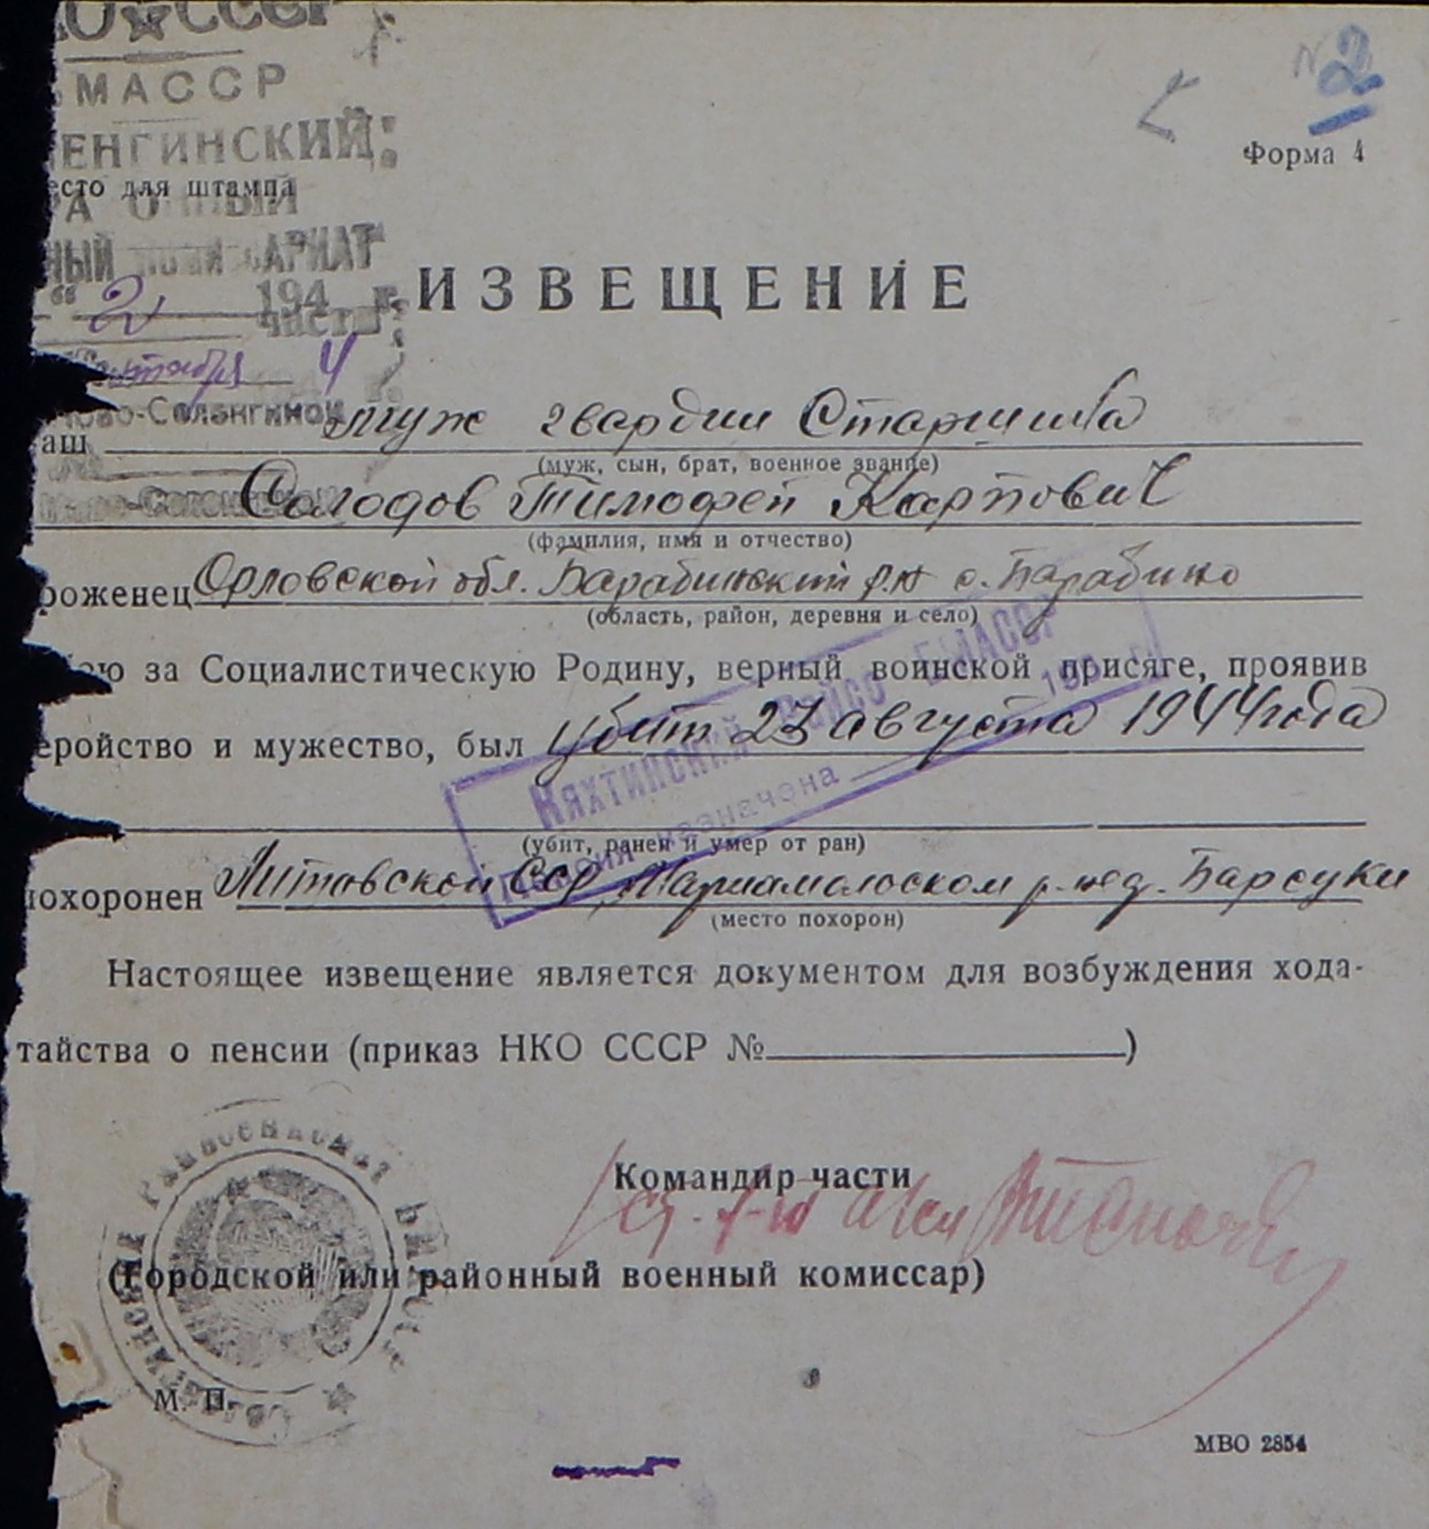 НКО СССР
БМАССР
№ 2
Форма 4
ЕНГИНСКИЙ
есто для штампа
НЫЙ АРИАТ
ИЗВЕЩЕНИЕ
" 2 194 г.
части
4
ово-Селенгинск
аш муж гвардии Старшина
(муж, сын, брат, военное звание)
Солодов Тимофей Карпович
(фамилия, имя и отчество)
роженец Орловской обл. Барабинский р.н с. Барабино
(область, район, деревня и село)
ою за Социалистическую Родину, верный воинской присяге, проявив
еройство и мужество, был убит 23 августа 1944 года
Кяхтинский БМАССР
назначена 194 г.
(убит, ранен и умер от ран)
похоронен Литовской ССР, Мариампольском р. нед. Барсуки
(место похорон)
Настоящее извещение является документом для возбуждения хода-
тайства о пенсии (приказ НКО СССР № )
Командир части
(Городской или районный военный комиссар)
М. П.
МВО 2854